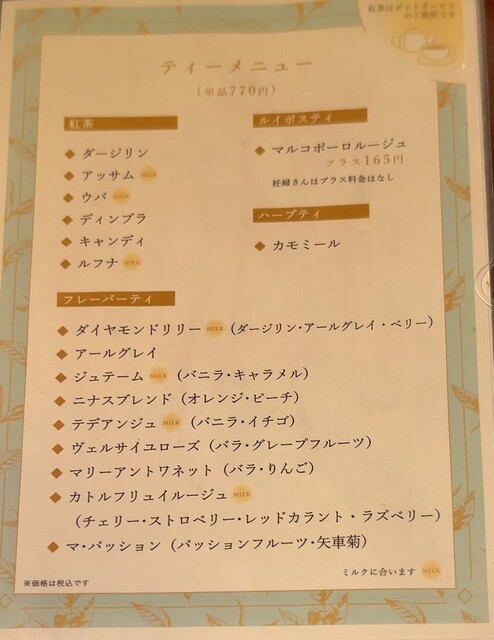 紅茶はポットサービス
のご提供です
ティーメニュー
(単品770円)
紅茶
◆ ダージリン
◆ アッサム MILK
◆ ウバ MILK
◆ ディンブラ
◆ キャンディ
◆ ルフナ MILK
ルイボスティ
◆ マルコポーロルージュ
プラス165円
妊婦さんはプラス料金はなし
ハーブティ
◆ カモミール
フレーバーティ
◆ ダイヤモンドリリー MILK (ダージリン・アールグレイ・ベリー)
◆ アールグレイ
◆ ジュテーム MILK (バニラ・キャラメル)
◆ ニナスブレンド (オレンジ・ピーチ)
◆ テデアンジュ MILK (バニラ・イチゴ)
◆ ヴェルサイユローズ (バラ・グレープフルーツ)
◆ マリーアントワネット (バラ・りんご)
◆ カトルフリュイルージュ MILK
(チェリー・ストロベリー・レッドカラント・ラズベリー)
◆ マ・パッション (パッションフルーツ・矢車菊)
ミルクに合います MILK
※価格は税込です